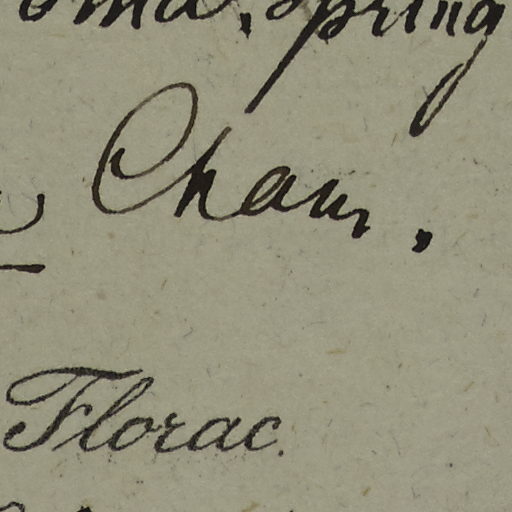 Spring
Cham.
Florac.